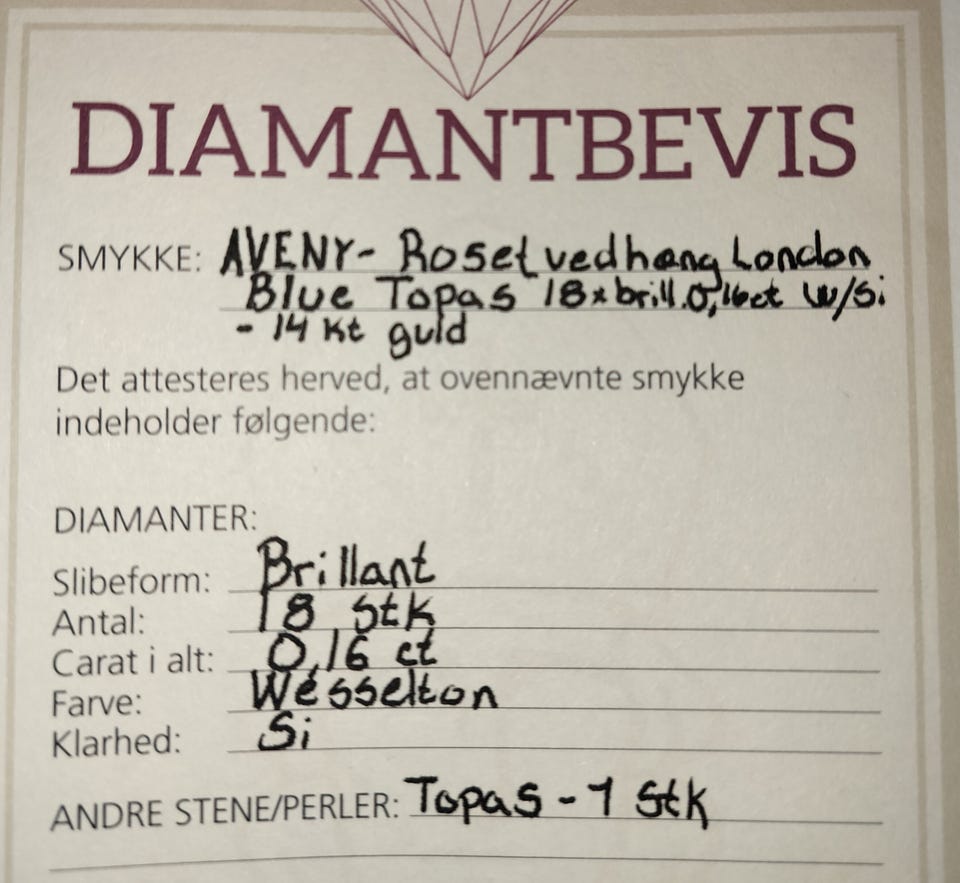 DIAMANTBEVIS
SMYKKE: AVENY- Roset vedhæng London
Blue Topas 18x brill. 0,16ct W/Si
- 14 kt guld
Det attesteres herved, at ovennævnte smykke
indeholder følgende:
DIAMANTER:
Slibeform: Brillant
Antal: 18 stk
Carat i alt: 0,16 ct
Farve: Wesselton
Klarhed: Si
ANDRE STENE/PERLER: Topas - 1 stk